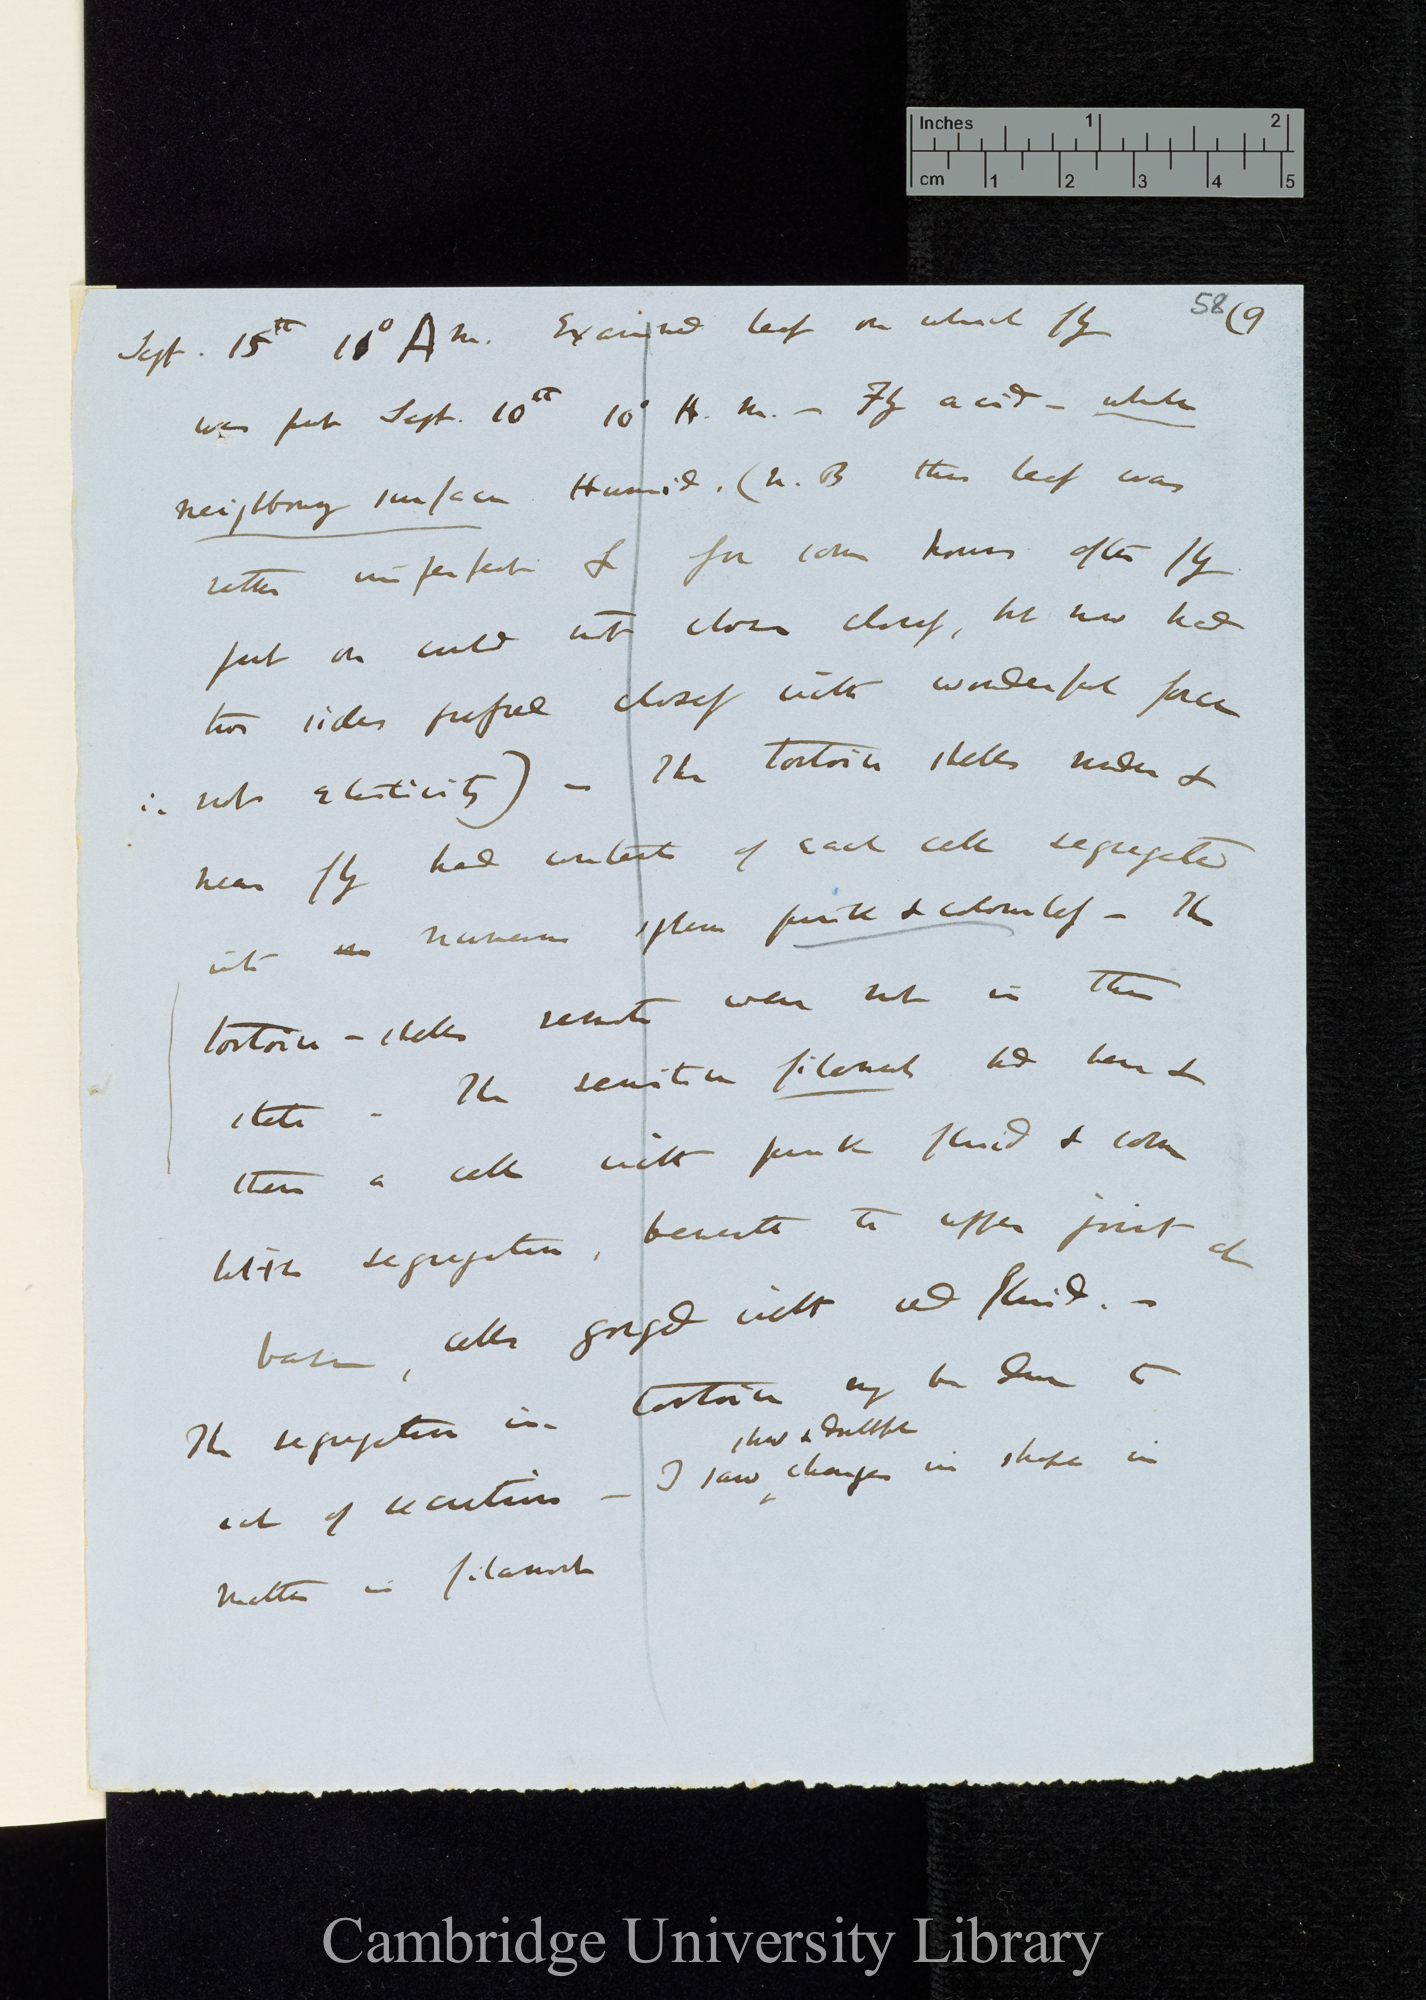 Inches 1 2
cm 1 2 3 4 5
58 (9
Sept. 15th 11° A m. Examined leaf on which fly
was put Sept. 10th 10° A. m. — Fly acid — whole
neighbourg surface Humid. (N. B this leaf was
rather imperfect & for some hours after fly
put on could not close closely, but now had
two sides pressed closely with wonderful force
∴ not elasticity) — The tortoise shells under &
near fly had contents of each cell segregated
into numerous spheres pink & colourless — The
tortoise-shells remote were not in this
state — The sensitive filament had here &
there a cell with pink fluid & some
little segregation, beneath the upper joint at
base, cells gorged with red fluid. —
The segregation in tortoise may be due to
act of secretion — I saw changes in shape in
slow & doubtful
matter in filament
Cambridge University Library